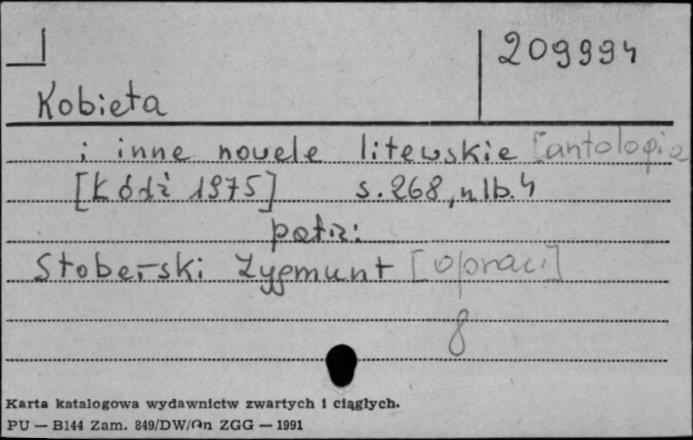 209994
Kobieta
i inne nowele litewskie [antologia
[Łódź 1975] s. 268, nlb. 4
patrz:
Stoberski Zygmunt [oprac.]
8
Karta katalogowa wydawnictw zwartych i ciągłych.
PU — B144 Zam. 849/DW/On ZGG — 1991